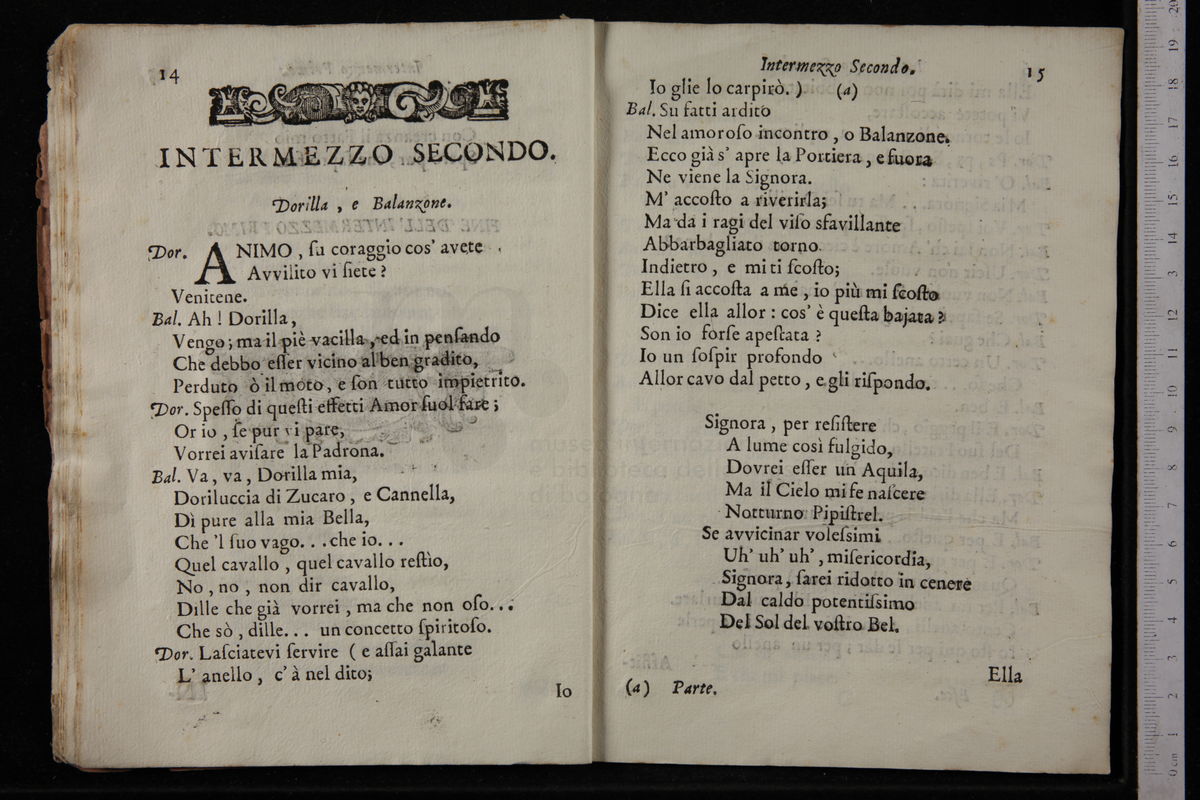 14
INTERMEZZO SECONDO.
Dorilla , e Balanzone.
Dor. ANIMO , ſu coraggio cos' avete
Avvilito vi ſiete ?
Venitene.
Bal. Ah ! Dorilla ,
Vengo ; ma il piè vacilla , ed in penſando
Che debbo eſſer vicino al ben gradito,
Perduto ò il moto , e ſon tutto impietrito.
Dor. Speſſo di queſti effetti Amor ſuol fare ;
Or io , ſe pur vi pare,
Vorrei aviſare la Padrona.
Bal. Va , va , Dorilla mia,
Doriluccia di Zucaro , e Cannella,
Dì pure alla mia Bella,
Che 'l ſuo vago. . . che io. . .
Quel cavallo , quel cavallo reſtìo,
No , no , non dir cavallo,
Dille che già vorrei , ma che non oſo. . .
Che sò , dille. . . un concetto ſpiritoſo.
Dor. Laſciatevi ſervire ( e aſſai galante
L' anello , c' à nel dito;
Io
Intermezzo Secondo.
15
Io glie lo carpirò. ) (a)
Bal. Su fatti ardito
Nel amoroſo incontro , o Balanzone.
Ecco già s' apre la Portiera , e fuora
Ne viene la Signora.
M' accoſto a riverirla;
Ma da i ragi del viſo sfavillante
Abbarbagliato torno.
Indietro , e mi ti ſcoſto;
Ella ſi accoſta a me , io più mi ſcoſto
Dice ella allor : cos' è queſta bajata ?
Son io forſe apeſtata ?
Io un ſoſpir profondo
Allor cavo dal petto , e gli riſpondo.
Signora , per reſiſtere
A lume così fulgido,
Dovrei eſſer un Aquila,
Ma il Cielo mi fe naſcere
Notturno Pipiſtrel.
Se avvicinar voleſsimi
Uh' uh' uh' , miſericordia,
Signora , ſarei ridotto in cenere
Dal caldo potentiſsimo
Del Sol del voſtro Bel.
Ella
(a) Parte.